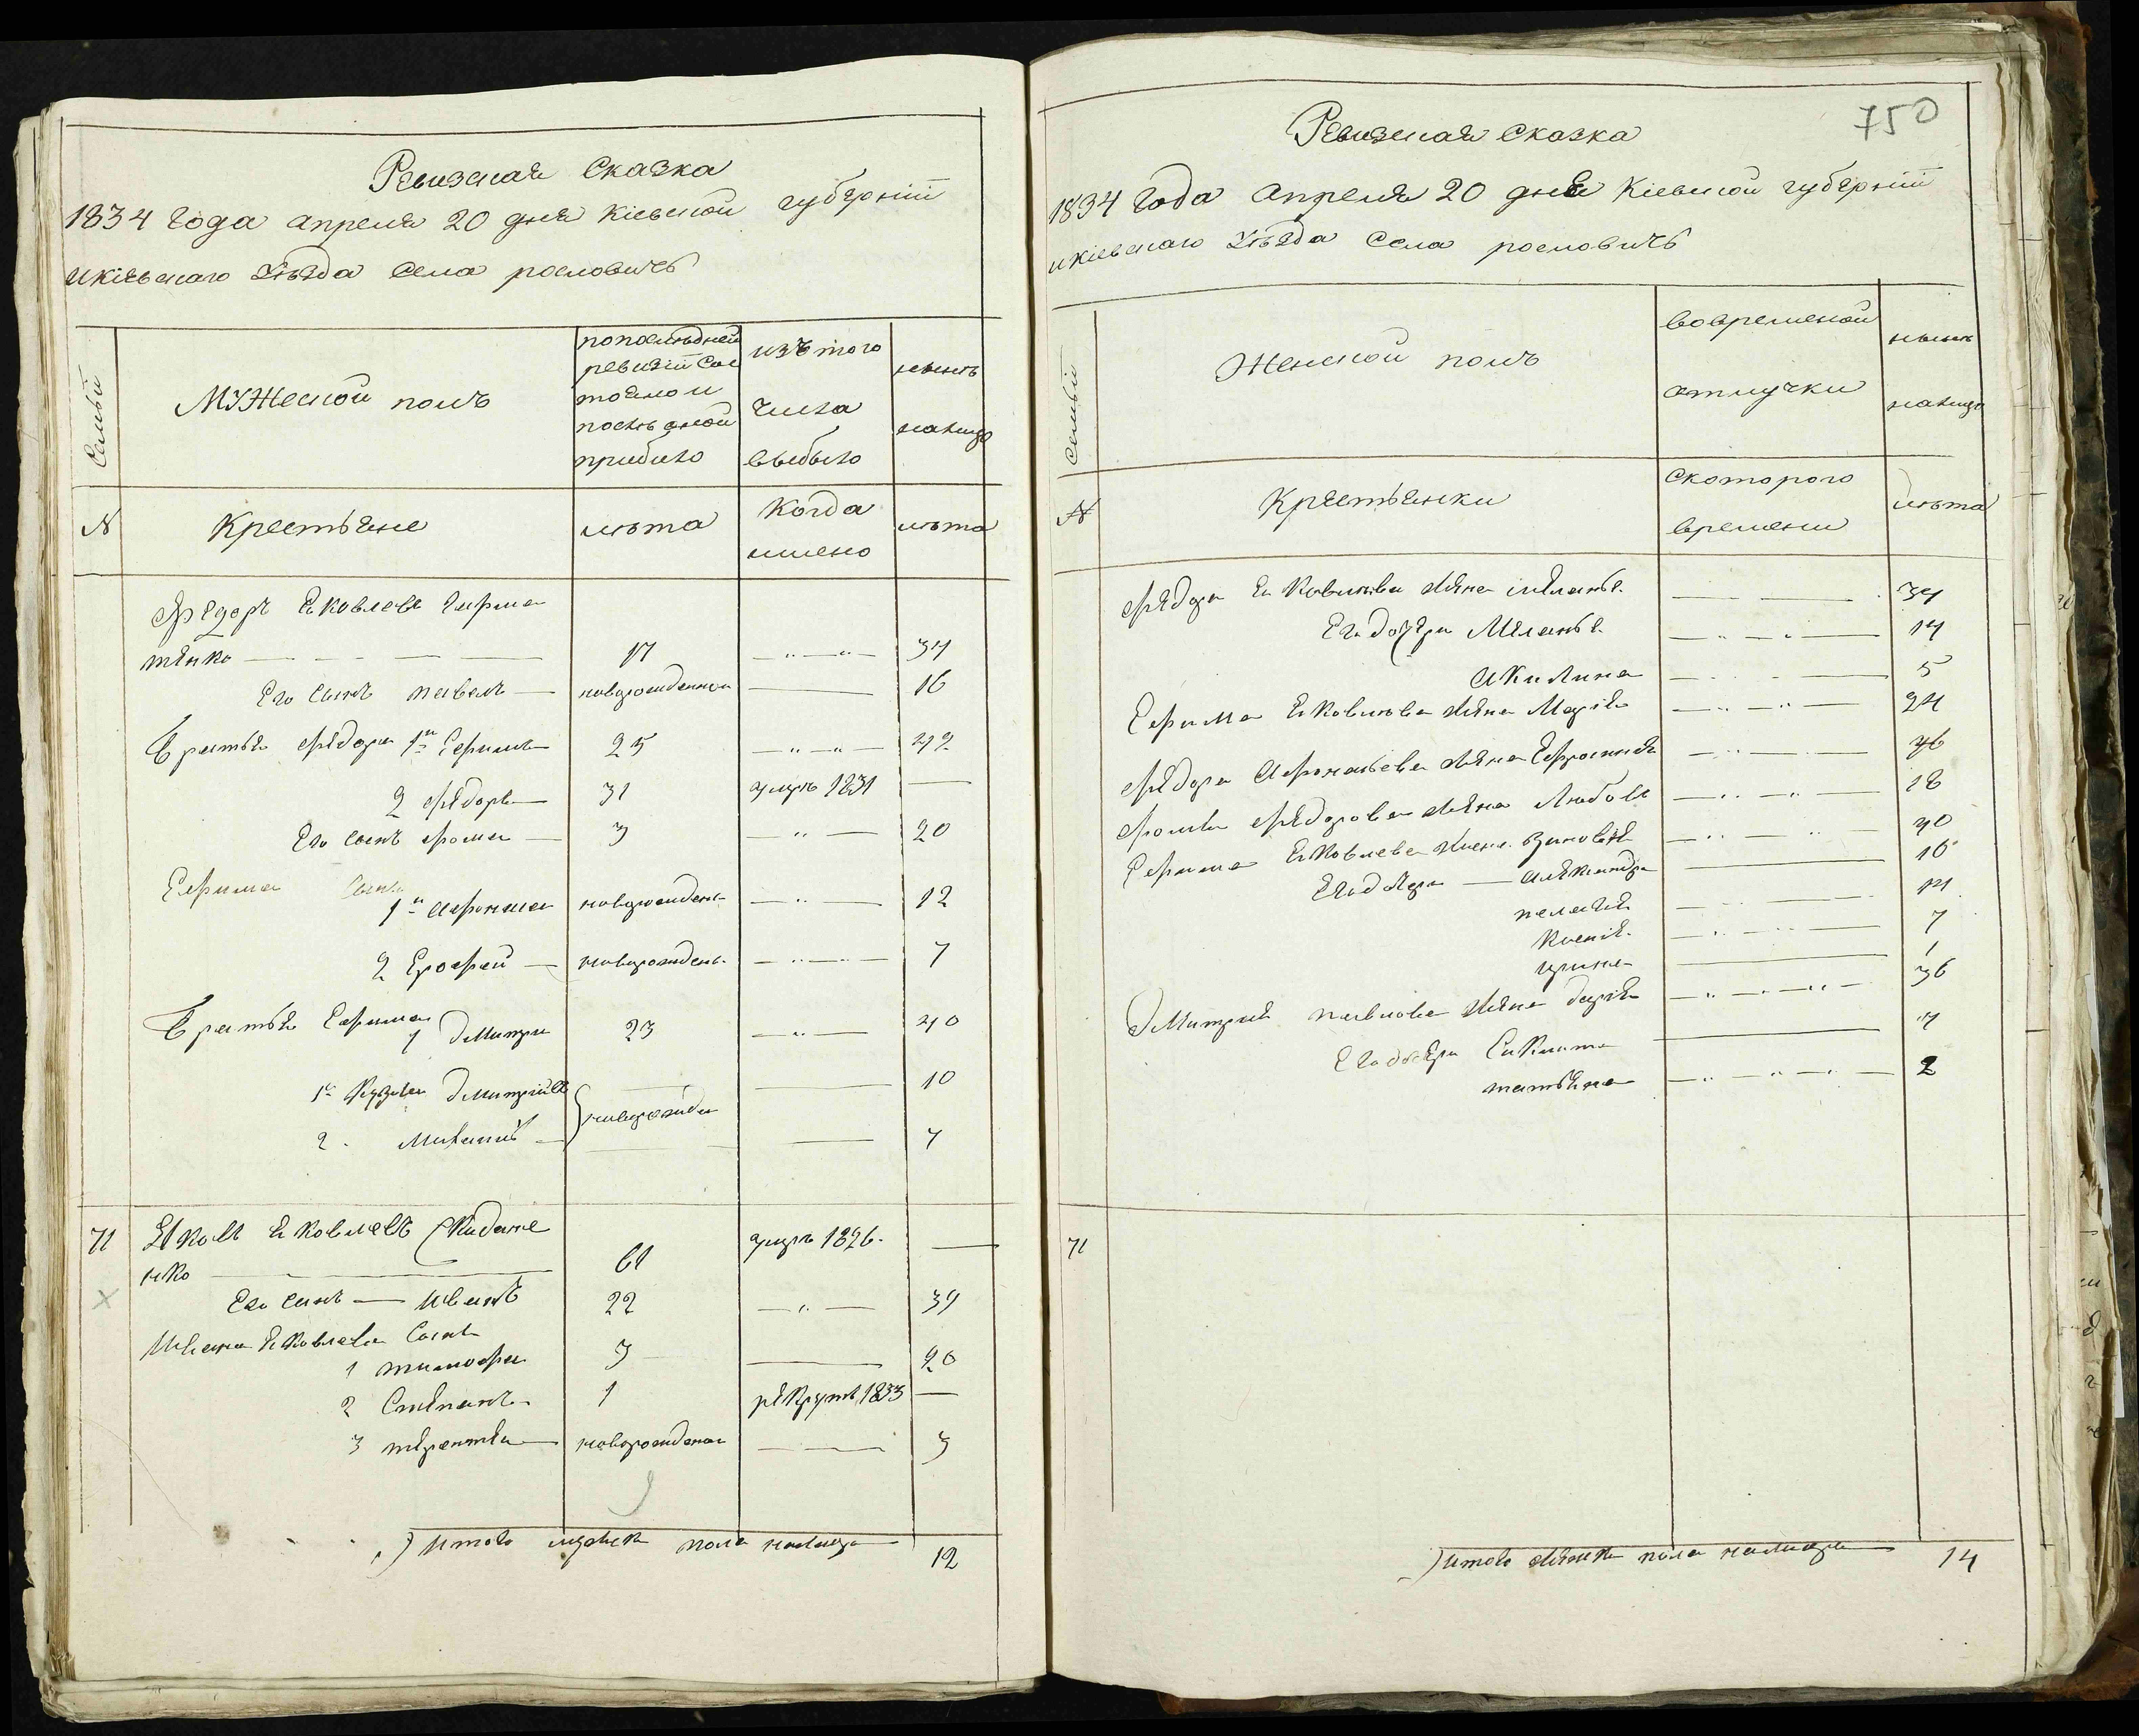 Ревизская Сказка
1834 Года апреля 20 дня Кіевской губерніи
и кіевскаго Уѣзда Села рословичъ
Семьи
Мужеской полъ
по последней ревизіи состояло и после оной прибыло
изъ того числа выбыло
нынѣ налицо
N
Крестьяне
лѣта
Когда имено
лѣта
Федоръ Яковлевъ
тенко — 17 — 34
Его сынъ павелъ — новорожденной — 16
Братья Федора 1й Ефимъ 25 — 42
2 Федоръ — 31 умре 1831 —
Его сынъ Фома — 3 — 20
Ефима сынъ
1й Афонасей новорожден — 12
2 Ерофей — новорожден — 7
Братья Ефима
1 Дмитри 23 — 40
1й Дмитріевъ — 10
новорожден
2 — 7
71 Яковъ Яковлевъ Скидане
нко — 61 умре 1826 —
Его сынъ — Иванъ 22 — 39
Ивана Яковлева сынъ
1 тимофеи 3 — 20
2 Степанъ 1 рекрутъ 1833 —
3 терентеи — новорожденои — 3
Итого мужеска пола налицо 12
750
Ревизская Сказка
1834 Года апреля 20 дня Кіевской губерніи
и кіевскаго Уѣзда Села рословичъ
Семьи
Женской полъ
во временой отлучки
нынѣ налицо
N
Крестьянки
с которого времени
лѣта
Федора Яковлева жена — 34
Его дочери Меланья — 14
Акилина — 5
Ефима Яковлева жена Марія — 24
Федора Афонасьева жена Ефросинія — 46
Фомы Федорова жена Любовь — 18
Ефима Яковлева жена Зиновія — 40
Его дочери — Александра — 16
пелагія — 14
Ксенія — 7
ирина — 1
Дмитрия павлова жена дарія — 36
Его дочери — 4
татьяна — 2
71
Итого женска пола налицо — 14